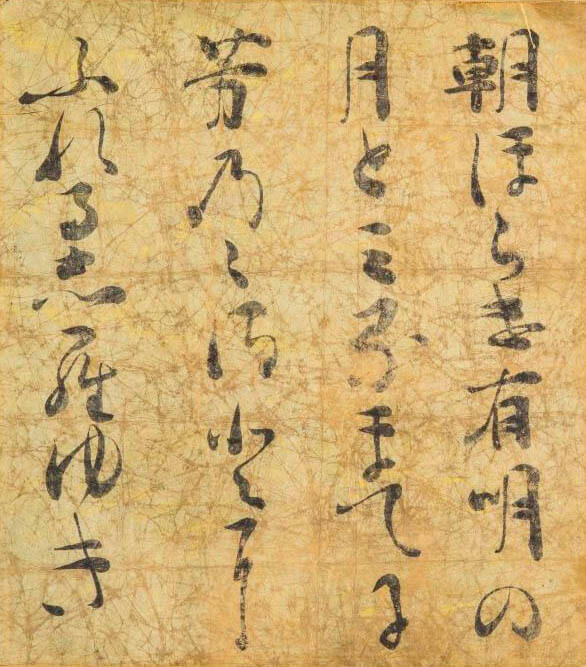 朝ほらけ有明の
月とミるまてに
芳乃ゝさとに
ふれる志羅ゆき